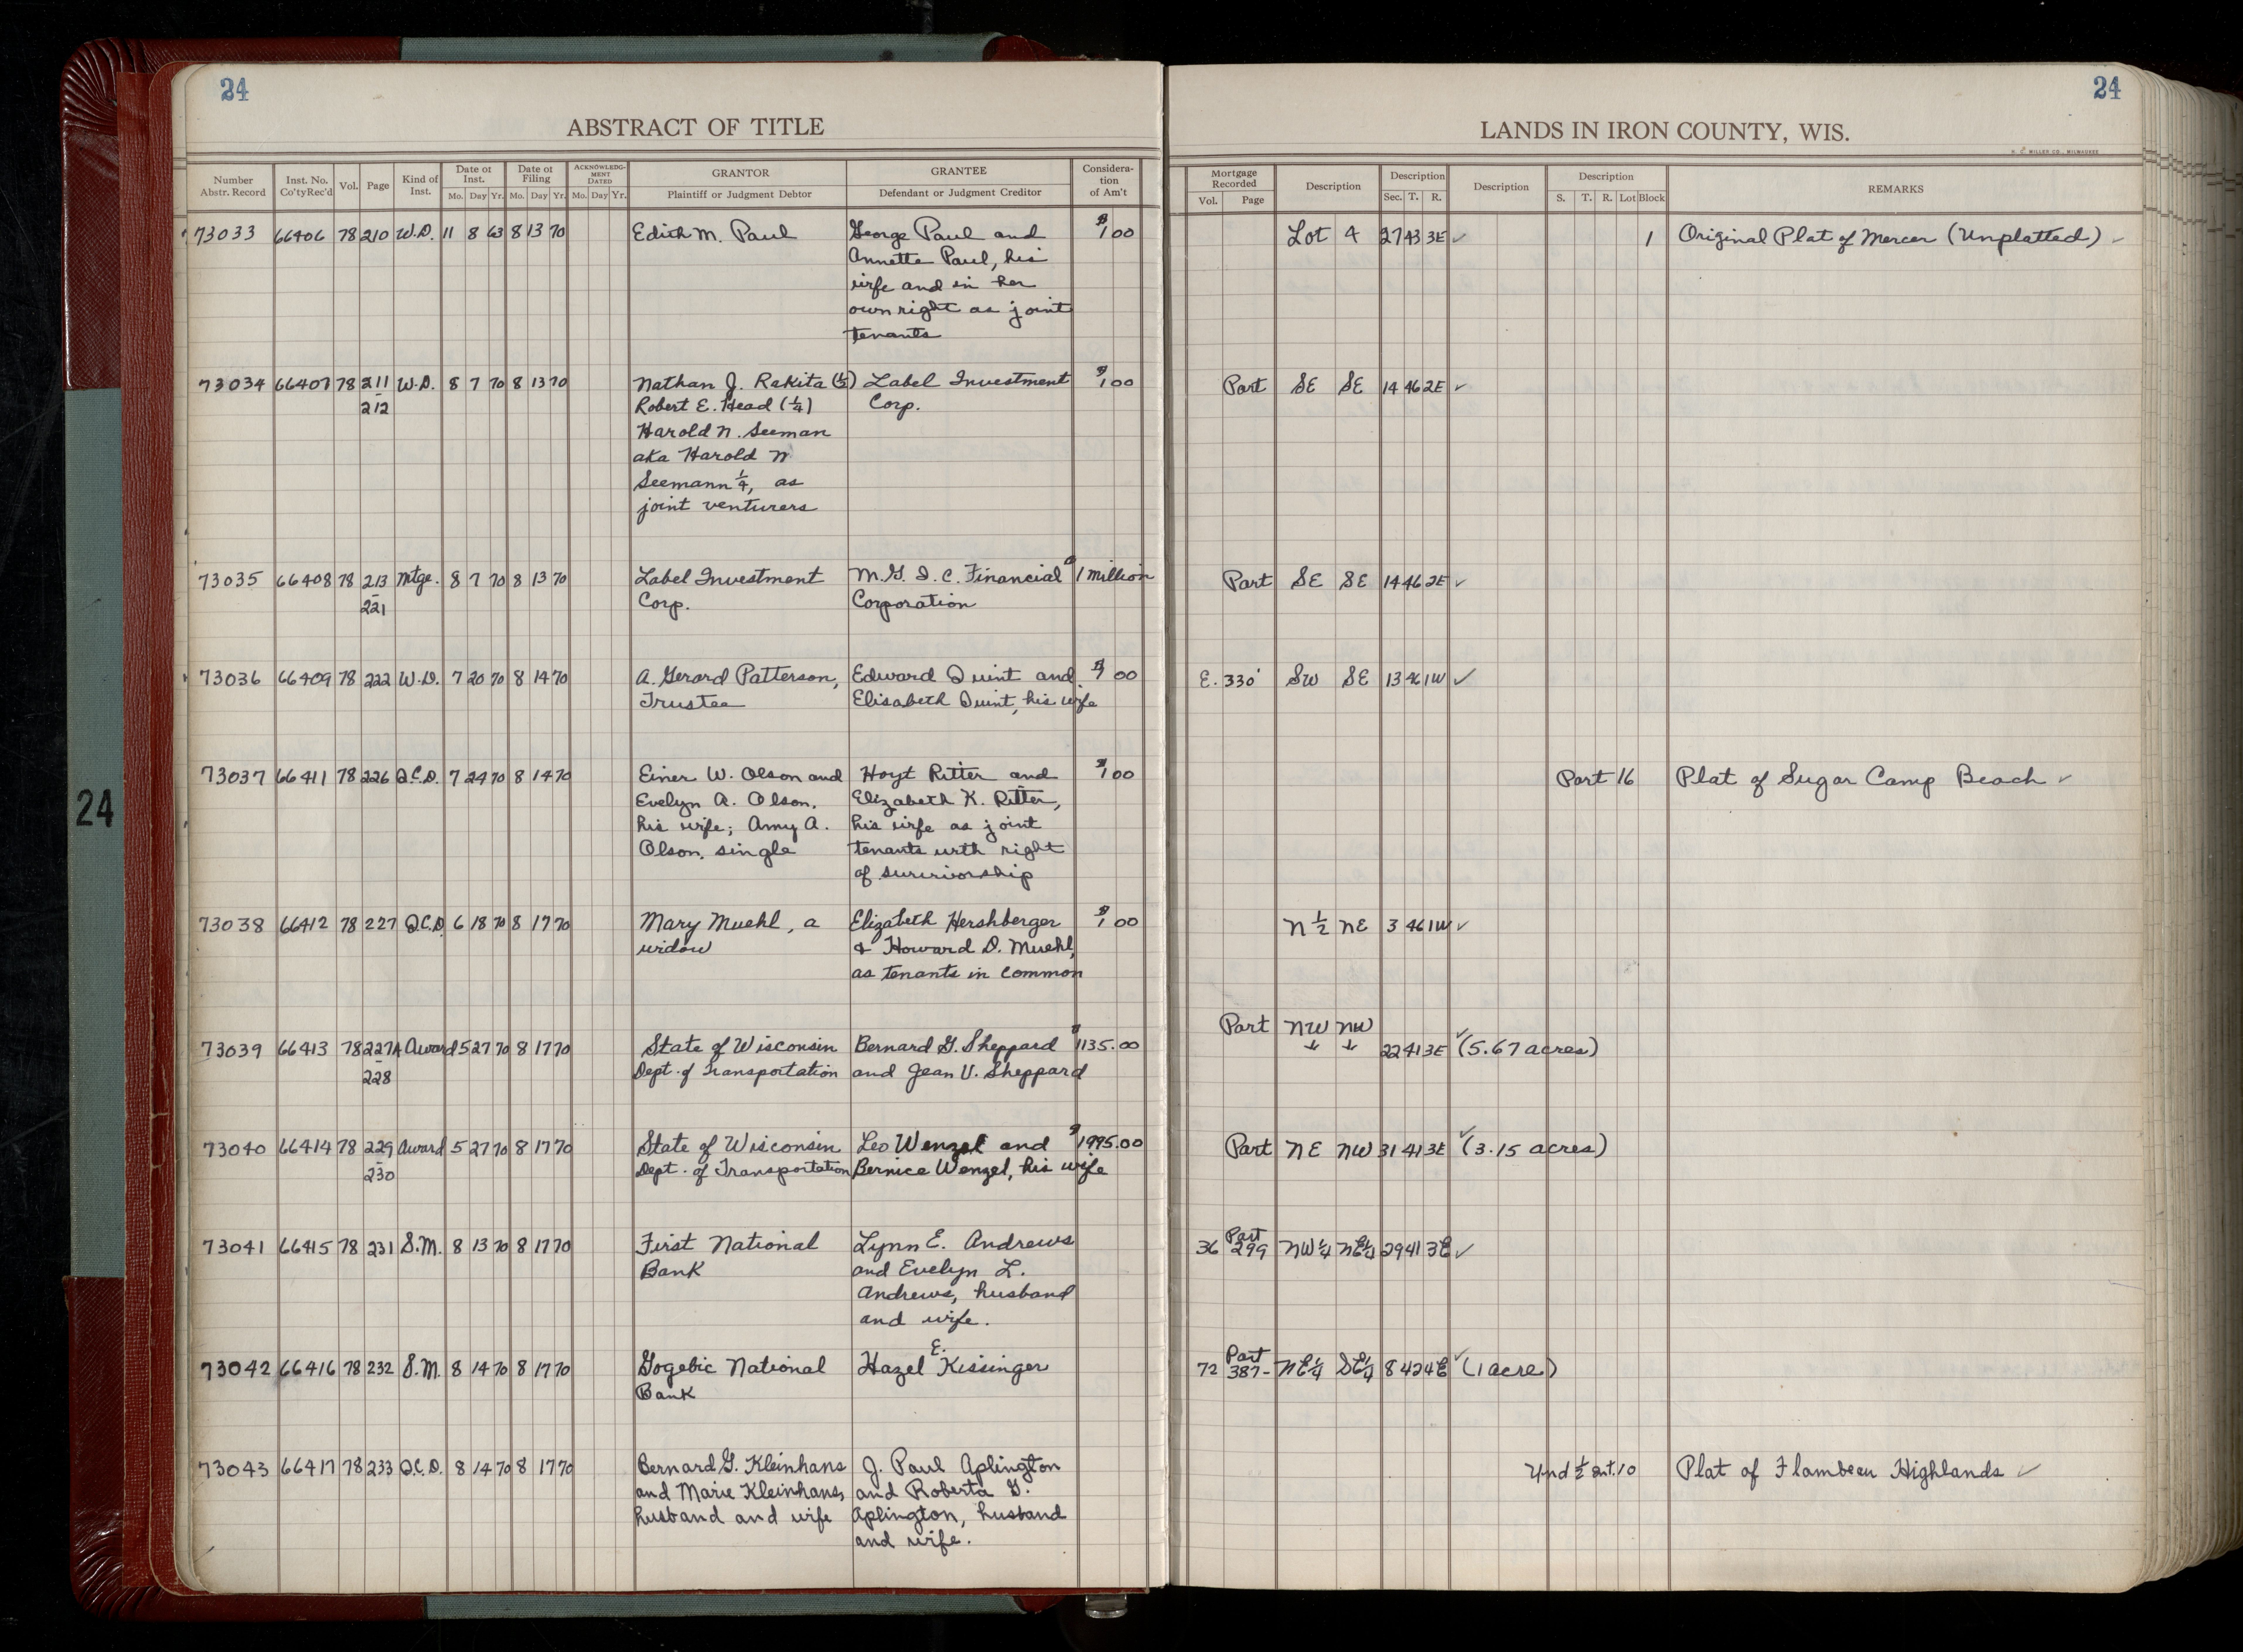 24
ABSTRACT OF TITLE
Number Abstr. Record | Inst. No. Co'ty Rec'd | Vol. | Page | Kind of Inst. | Date of Inst. Mo. Day Yr. | Date of Filing Mo. Day Yr. | ACKNOWLEDGMENT DATED Mo. Day Yr. | GRANTOR Plaintiff or Judgment Debtor | GRANTEE Defendant or Judgment Creditor | Consideration of Am't
73033 66406 78 210 W.D. 11 8 63 8 13 70 Edith M. Paul George Paul and $1 00
Annette Paul, his
wife and in her
own right as joint
tenants
73034 66407 78 211 W.D. 8 7 70 8 13 70 Nathan J. Rakita (½) Label Investment $1 00
- 212 Robert E. Head (¼) Corp.
Harold N. Seeman
aka Harold N
Seemann ¼, as
joint venturers
73035 66408 78 213 Mtge. 8 7 70 8 13 70 Label Investment M.G.I.C. Financial $1 million
- 221 Corp. Corporation
73036 66409 78 222 W.D. 7 20 70 8 14 70 A. Gerard Patterson, Edward Quint and $1 00
Trustee Elisabeth Quint, his wife
73037 66411 78 226 Q.C.D. 7 24 70 8 14 70 Einer W. Olson and Hoyt Ritter and $1 00
Evelyn A. Olson, Elizabeth K. Ritter,
his wife; Amy A. his wife as joint
Olson, single tenants with right
of survivorship
73038 66412 78 227 Q.C.D. 6 18 70 8 17 70 Mary Muehl, a Elizabeth Hershberger $1 00
widow & Howard D. Muehl,
as tenants in common
73039 66413 78 227A Award 5 27 70 8 17 70 State of Wisconsin Bernard G. Sheppard $1135.00
- 228 Dept. of Transportation and Jean V. Sheppard
73040 66414 78 229 Award 5 27 70 8 17 70 State of Wisconsin Leo Wenzel and $1995.00
- 230 Dept. of Transportation Bernice Wenzel, his wife
73041 66415 78 231 S.M. 8 13 70 8 17 70 First National Lynn E. Andrews
Bank and Evelyn L.
Andrews, husband
and wife.
73042 66416 78 232 S.M. 8 14 70 8 17 70 Gogebic National Hazel E. Kissinger
Bank
73043 66417 78 233 Q.C.D. 8 14 70 8 17 70 Bernard G. Kleinhans J. Paul Aplington
and Marie Kleinhans, and Roberta G.
husband and wife Aplington, husband
and wife.
24
24
LANDS IN IRON COUNTY, WIS.
H. C. MILLER CO., MILWAUKEE
Mortgage Recorded Vol. Page | Description | Description Sec. T. R. | Description | Description S. T. R. Lot Block | REMARKS
Lot 4 27 43 3E ✓ 1 Original Plat of Mercer (Unplatted) ✓
Part SE SE 14 46 2E ✓
Part SE SE 14 46 2E ✓
E. 330' SW SE 13 46 1W ✓
Part 16 Plat of Sugar Camp Beach ✓
N ½ NE 3 46 1W ✓
Part NW NW
22 41 3E ✓ (5.67 acres)
Part NE NW 31 41 3E ✓ (3.15 acres)
36 Part 299 NW¼ NE¼ 29 41 3E ✓
72 Part 387- NE¼ SE¼ 8 42 4E ✓ (1 acre)
Und ½ int. 10 Plat of Flambeau Highlands ✓